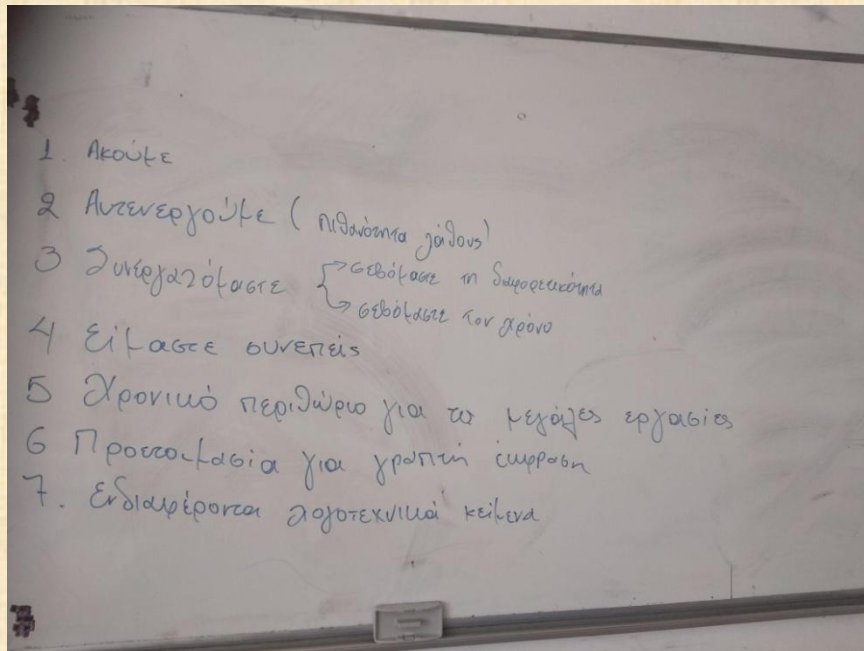 1. Ακούμε
2 Αυτενεργούμε (πιθανότητα λάθους)
3 Συνεργαζόμαστε → σεβόμαστε τη διαφορετικότητα
→ σεβόμαστε τον χρόνο
4 Είμαστε συνεπείς
5 Χρονικό περιθώριο για τις μεγάλες εργασίες
6 Προετοιμασία για γραπτή έκφραση
7. Ενδιαφέροντα λογοτεχνικά κείμενα